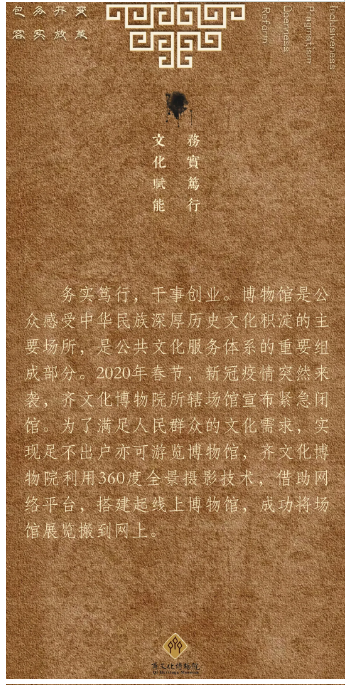 包务开变
容实放革
Inclusiveness
Pragmatism
Openness
Reform
務實篤行
文化賦能
务实笃行，干事创业。博物馆是公
众感受中华民族深厚历史文化积淀的主
要场所，是公共文化服务体系的重要组
成部分。2020年春节，新冠疫情突然来
袭，齐文化博物院所辖场馆宣布紧急闭
馆。为了满足人民群众的文化需求，实
现足不出户亦可游览博物馆，齐文化博
物院利用360度全景摄影技术，借助网
络平台，搭建起线上博物馆，成功将场
馆展览搬到网上。
齐文化博物院